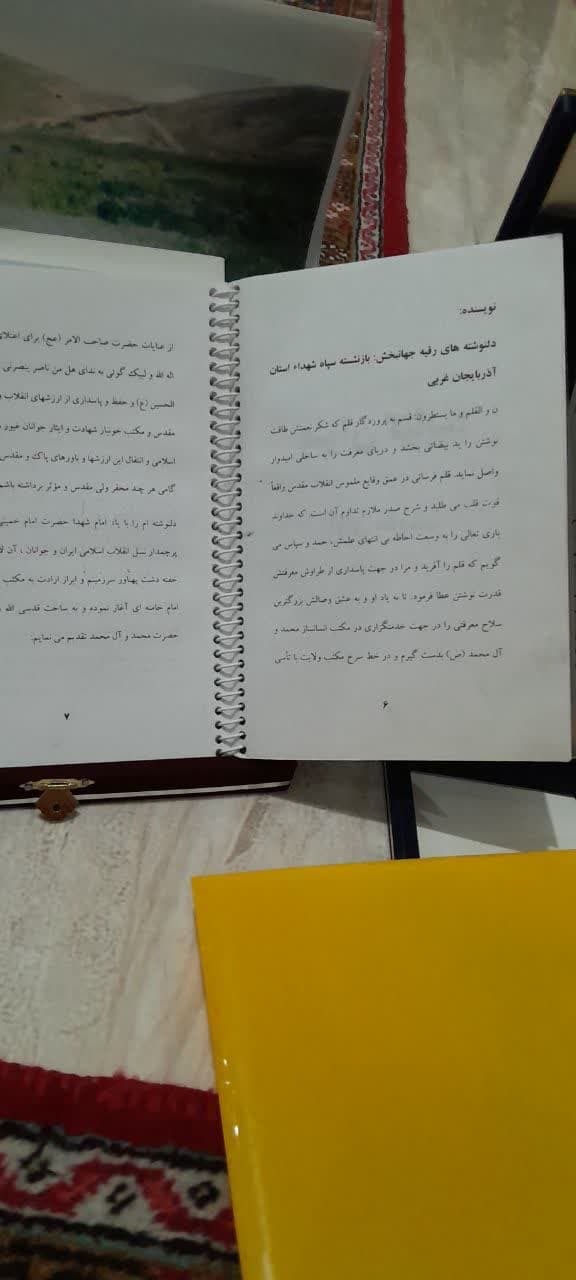 نویسنده:
دلنوشته های رقیه جهانبخش: بازنشسته سپاه شهداء استان
آذربایجان غربی
ن و القلم و ما یسطرون: قسم به پروردگار قلم که شکر نعمتش طاقت
نوشتن را ید بیضائی بخشد و دریای معرفت را به ساحلی امیدوار
واصل نماید. قلم فرسائی در عمق وقایع ملموس انقلاب مقدس واقعاً
قوت قلب می طلبد و شرح صدر ملازم تداوم آن است که خداوند
باری تعالی را به وسعت احاطه بی انتهای علمش، حمد و سپاس می
گویم که قلم را آفرید و مرا در جهت پاسداری از طراوش معرفتش
قدرت نوشتن عطا فرمود. تا به یاد او و به عشق وصالش بزرگترین
سلاح معرفتی را در جهت خدمتگزاری در مکتب انسانساز محمد و
آل محمد (ص) بدست گیرم و در خط سرخ مکتب ولایت با تأسی
۶
از عنایات حضرت صاحب الامر (عج) برای اعتلای
اله الله و لبیک گوئی به ندای هل من ناصر ینصرنی
الحسین (ع) و حفظ و پاسداری از ارزشهای انقلاب و
مقدس و مکتب خونبار شهادت و ایثار جوانان غیور
اسلامی و انتقال این ارزشها و باورهای پاک و مقدس
گامی هر چند محقر ولی مقدس و مؤثر برداشته باشم
دلنوشته ام را با یاد امام شهدا حضرت امام خمینی
پرچمدار نسل انقلاب اسلامی ایران و جوانان ، آن
خفته دشت پهناور سرزمینم و ابراز ارادت به مکتب
امام خامنه ای آغاز نموده و به ساحت قدسی الله و
حضرت محمد و آل محمد تقدیم می نمایم.
۷